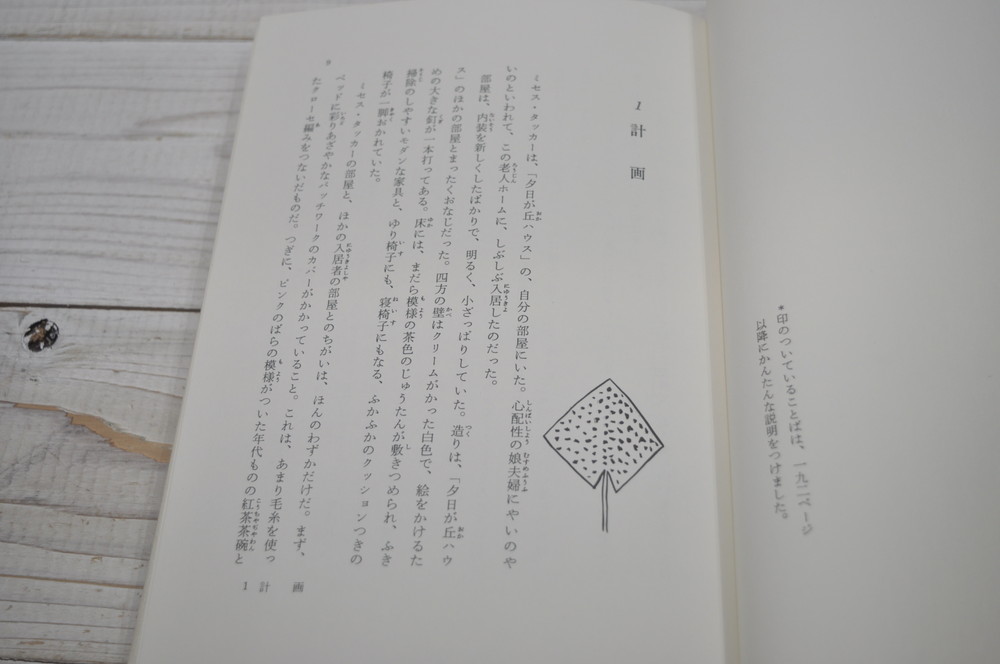 *印のついていることばは、一九二ページ
以降にかんたんな説明をつけました。
1 計画
ミセス・タッカーは、「夕日が丘ハウス」の、自分の部屋にいた。心配性の娘夫婦にやいのや
いのといわれて、この老人ホームに、しぶしぶ入居したのだった。
部屋は、内装を新しくしたばかりで、明るく、小ざっぱりしていた。造りは、「夕日が丘ハウ
ス」のほかの部屋とまったくおなじだった。四方の壁はクリームがかった白色で、絵をかけるた
めの大きな釘が一本打ってある。床には、まだら模様の茶色のじゅうたんが敷きつめられ、ふき
掃除のしやすいモダンな家具と、ゆり椅子にも、寝椅子にもなる、ふかふかのクッションつきの
椅子が一脚おかれていた。
ミセス・タッカーの部屋と、ほかの入居者の部屋とのちがいは、ほんのわずかだけだ。まず、
ベッドに彩りあざやかなパッチワークのカバーがかかっていること。これは、あまり毛糸を使っ
たクローセ編みをつないだものだ。つぎに、ピンクのばらの模様がついた年代ものの紅茶茶碗と
9
1 計画